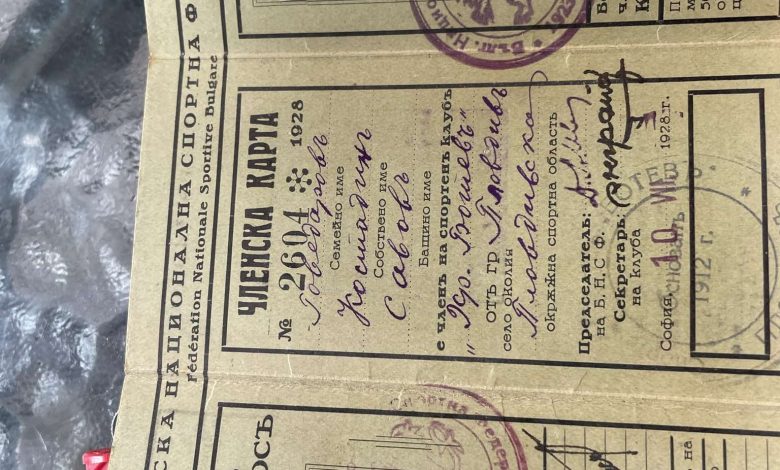 СКА НАЦИОНАЛНА СПОРТНА Ф
Fédération Nationale Sportive Bulgare
ЧЛЕНСКА КАРТА
№ 2604 1928
Говедаровъ
Семейно име
Костадинъ
Собствено име
Савовъ
Бащино име
е членъ на спортенъ клубъ
"Хр. Ботевъ"
отъ гр Пловдивъ
село околия
Пловдивска
окрѫжна спортна область
Председатель:
на Б.Н.С.Ф.
Секретарь:
на клуба
София, 10 VII 1928 г.
БОТЕВ
Основанъ
1912 г.
Бълг. Нацио
1923
ОСТЬ
на